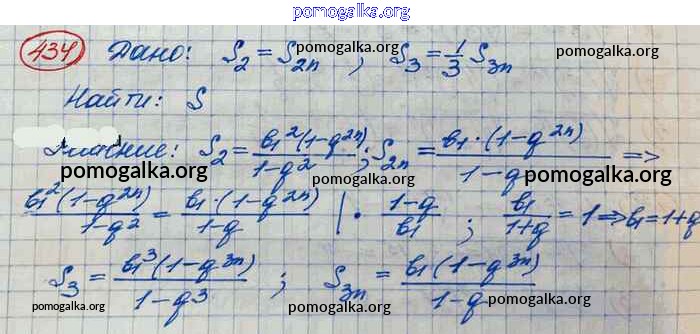 pomogalka.org
434 Дано: S₂ = S₂ₙ ; S₃ = 1/3 S₃ₙ
pomogalka.org pomogalka.org
Найти: S
pomogalka.org pomogalka.org
S₂ = b₁²(1-q²ⁿ)/1-q² ; S₂ₙ = b₁·(1-q²ⁿ)/1-q =>
pomogalka.org pomogalka.org pomogalka.org
b₁²(1-q²ⁿ)/1-q² = b₁·(1-q²ⁿ)/1-q |· 1-q/b₁ ; b₁/1+q = 1 => b₁=1+q
pomogalka.org pomogalka.org
S₃ = b₁³(1-q³ⁿ)/1-q³ ; S₃ₙ = b₁(1-q³ⁿ)/1-q
pomogalka.org pomogalka.org pomogalka.org